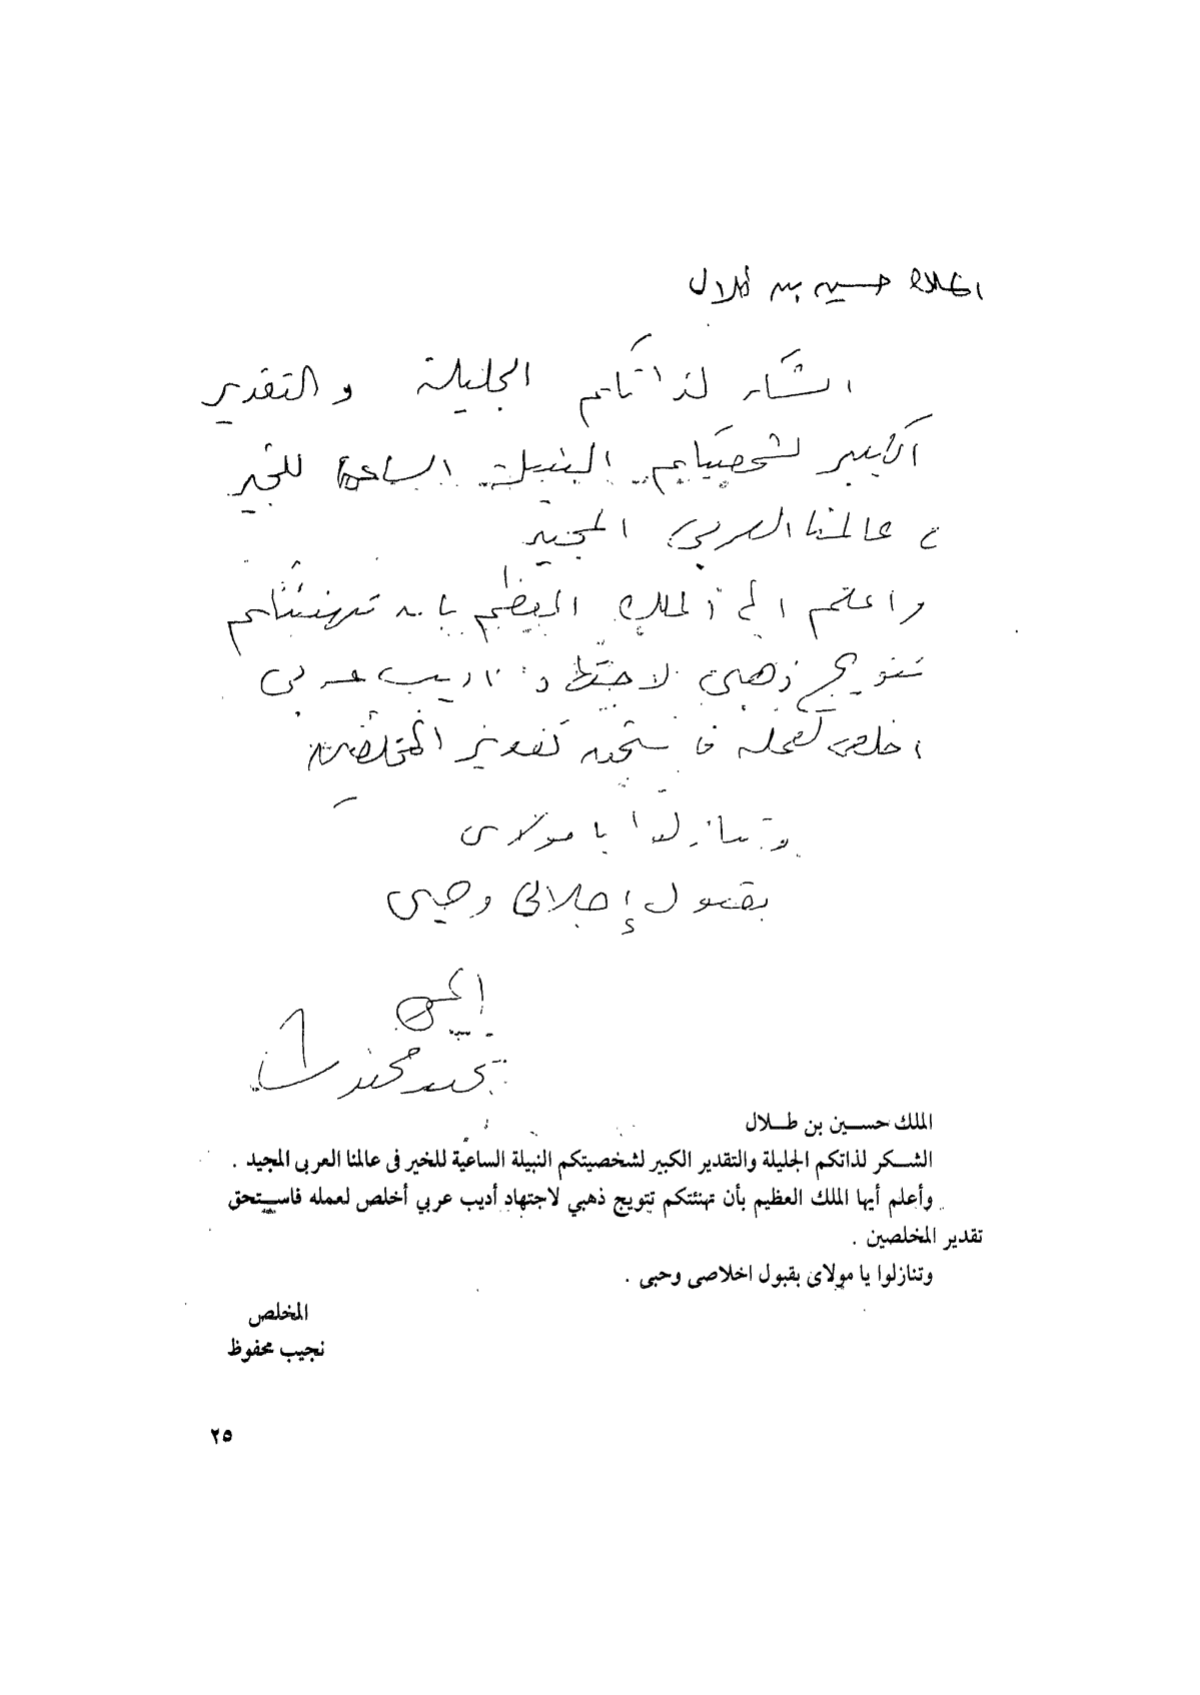 الملك حسين بن طلال
الشكر لذاتكم الجليلة والتقدير
الكبير لشخصيتكم النبيلة الساعية للخير
في عالمنا العربي المجيد
واعلم ايها الملك العظيم بان تهنئتكم
تتويج ذهبي لاجتهاد اديب عربي
اخلص لعمله فاستحق تقدير المخلصين
وتنازلوا يا مولاى
بقبول إجلالى وحبى
المخلص
نجيب محفوظ
الملك حســين بن طــلال
الشــكر لذاتكم الجليلة والتقدير الكبير لشخصيتكم النبيلة الساعية للخير فى عالمنا العربى المجيد .
وأعلم أيها الملك العظيم بأن تهنئتكم تتويج ذهبي لاجتهاد أديب عربي أخلص لعمله فاســتحق
تقدير المخلصين .
وتنازلوا يا مولاى بقبول اخلاصى وحبى .
المخلص
نجيب محفوظ
٢٥